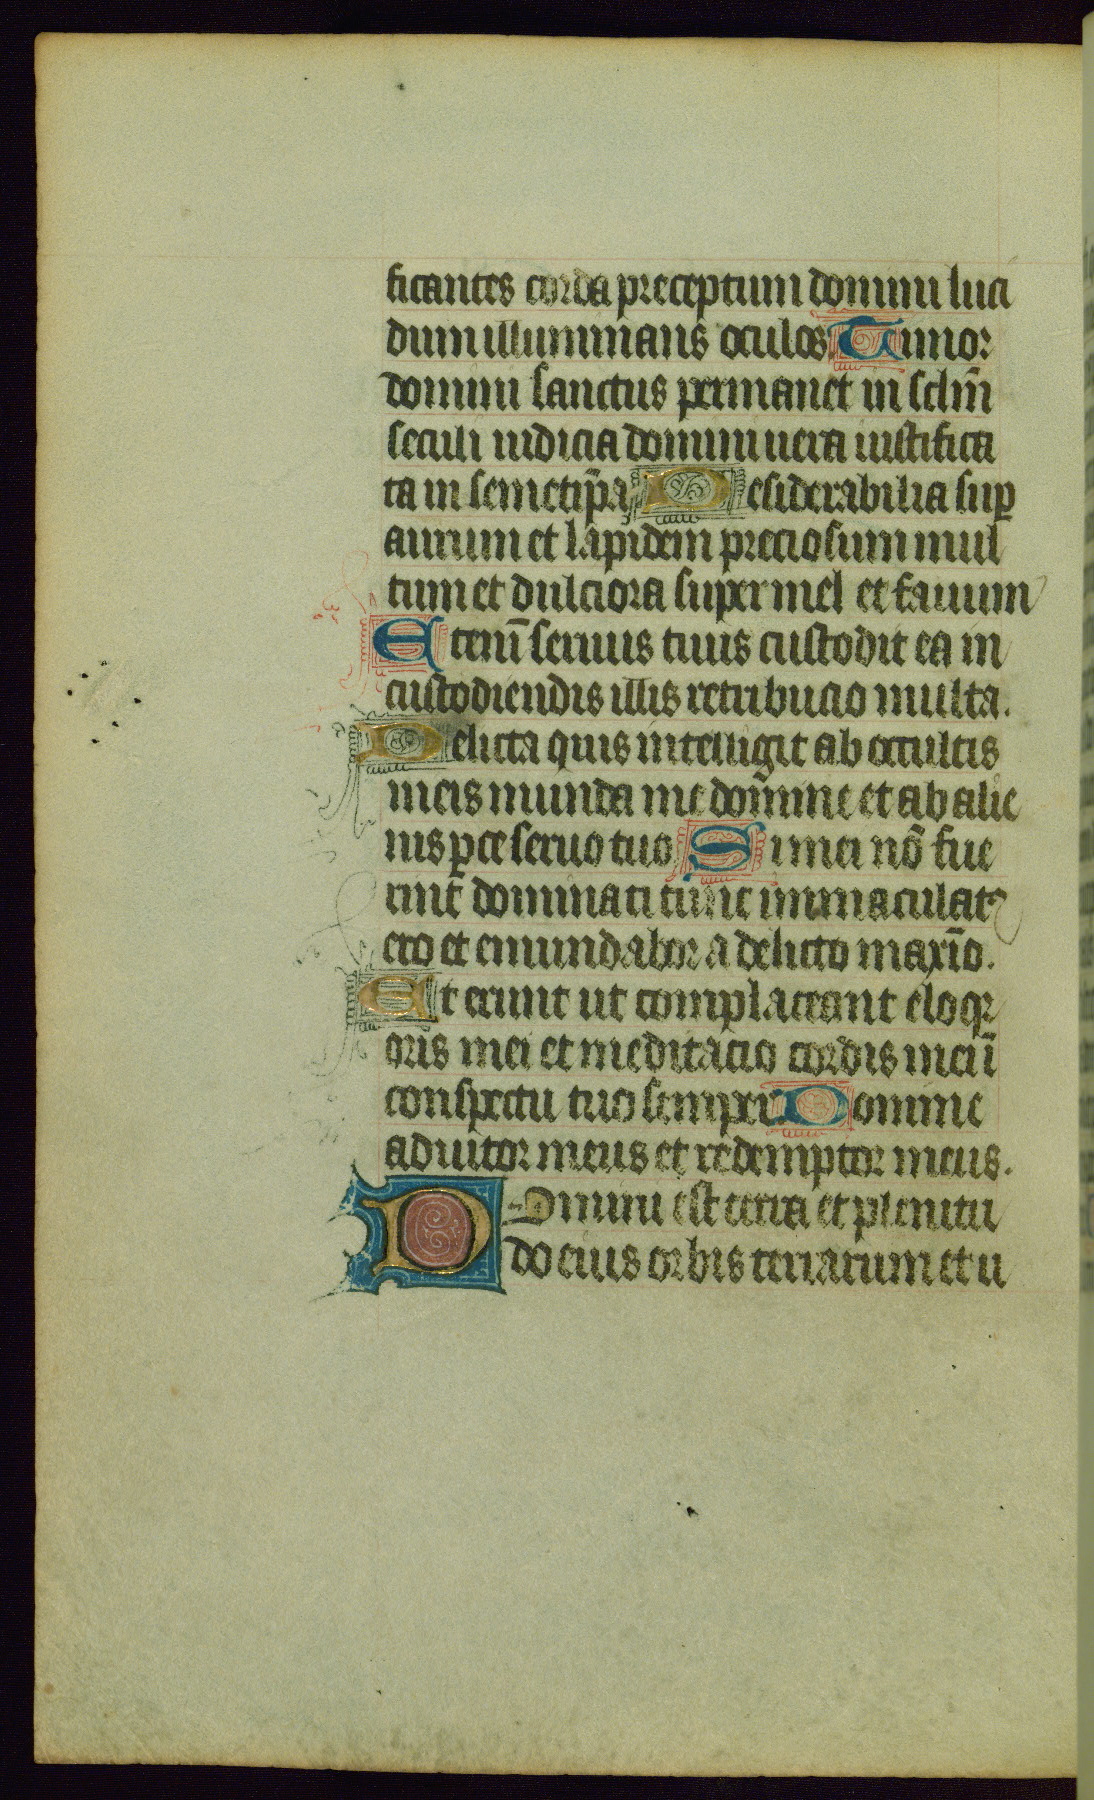 ficantes corda preceptum domini luci
dum illuminans oculos Timor
domini sanctus permanet in sclm̄
seculi iudicia domini uera iustifica
ta in semetip̄a Desiderabilia sup̲
aurum et lapidem preciosum mul
tum et dulciora super mel et fauum
Etenī seruus tuus custodit ea in
custodiendis illis retribucio multa.
Delicta quis intelligit ab occultis
meis munda me dom̄ine et ab alie
nis p̲ce seruo tuo Si mei nō fue
rint̄ dominati tunc immaculatꝰ
ero et emundabor a delicto maxīo.
Et erunt ut complaceant eloqꝛ
oris mei et meditacio cordis mei ī
conspectu tuo semper Domine
adiutor meus et redemptor meus.
Domini est terra et plenitu
do eius orbis terrarum et u